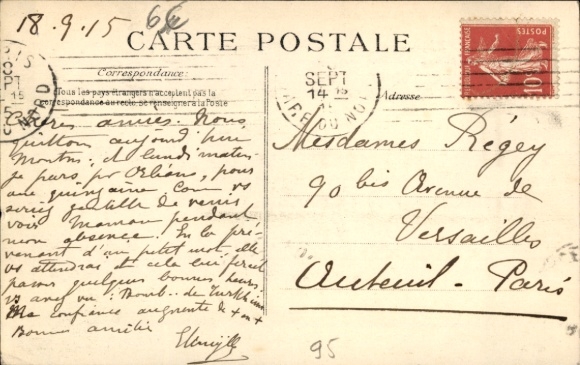 18.9.15
6€
CARTE POSTALE
Correspondance:
Tous les pays étrangers n'acceptent pas la
correspondance au recto. Se renseigner à la Poste
Adresse
SEPT
14
POSTES
10
Chères amies. Nous
quittons aujourd'hui
Menton; et lundi matin
je pars pr Orléans, pour
une quinzaine. Com vs
seriez gentille de venir
voir Maman pendant
mon absence. En la pré-
venant d'un petit mot, elle
vs attendrait et cela lui ferait
passer quelques bonnes heures.
vs avez vu : Bomb..
Ma confiance augmente de + en +
Bonne amitié
Mesdames Régey
90 bis Avenue de
Versailles
Auteuil - Paris
95